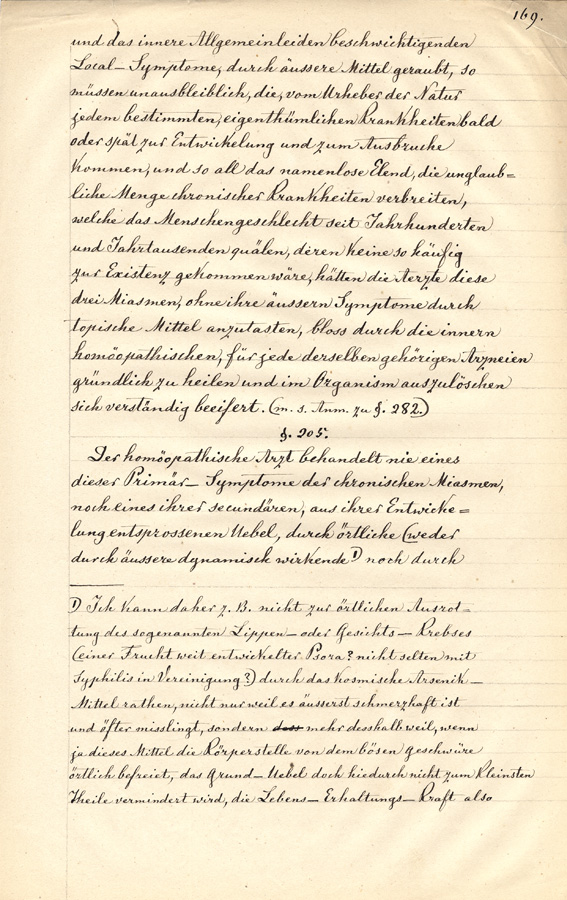 169.
und das innere Allgemeinleiden beschwichtigenden
Local-Symptome, durch äussere Mittel geraubt, so
müssen unausbleiblich, die, vom Urheber der Natur
jedem bestimmten, eigenthümlichen Krankheiten bald
oder spät zur Entwickelung und zum Ausbruche
kommen, und so all das namenlose Elend, die unglaub=
liche Menge chronischer Krankheiten verbreiten,
welche das Menschengeschlecht seit Jahrhunderten
und Jahrtausenden quälen, deren keine so häufig
zur Existenz gekommen wäre, hätten die Aerzte diese
drei Miasmen, ohne ihre äussern Symptome durch
topische Mittel anzutasten, bloss durch die innern
homöopathischen, für jede derselben gehörigen Arzneien
gründlich zu heilen und im Organism auszulöschen
sich verständig beeifert. (m. s. Anm. zu §. 282.)
§. 205.
Der homöopathische Arzt behandelt nie eines
dieser Primär-Symptome der chronischen Miasmen,
noch eines ihrer secundären, aus ihrer Entwicke=
lung entsprossenen Uebel, durch örtliche (weder
durch äussere dynamisch wirkende 1) noch durch
1) Ich kann daher z. B. nicht zur örtlichen Ausrot=
tung des sogenannten Lippen- oder Gesichts-Krebses
(einer Frucht weit entwickelter Psora? nicht selten mit
Syphilis in Vereinigung?) durch das kosmische Arsenik-
Mittel rathen, nicht nur weil es äusserst schmerzhaft ist
und öfter misslingt, sondern mehr desshalb weil, wenn
ja dieses Mittel die Körperstelle von dem bösen Geschwüre
örtlich befreiet, das Grund-Uebel doch hiedurch nicht zum kleinsten
Theile vermindert wird, die Lebens-Erhaltungs-Kraft also